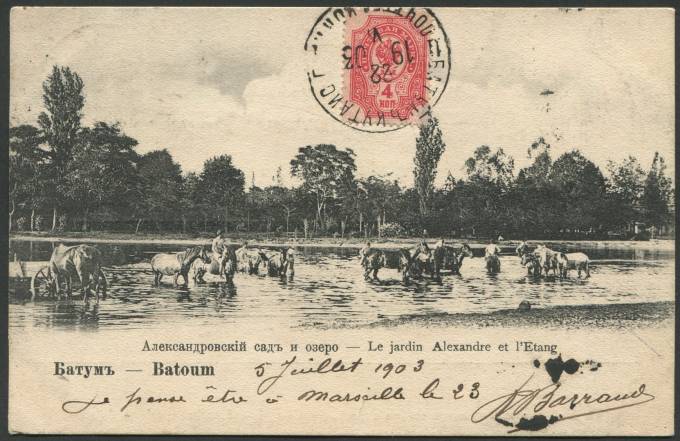 22
V 03
19
4
КОП
Александровскій садъ и озеро — Le jardin Alexandre et l'Etang
Батумъ — Batoum
5 Juillet 1903
Je pense être à Marseille le 23
Barraud